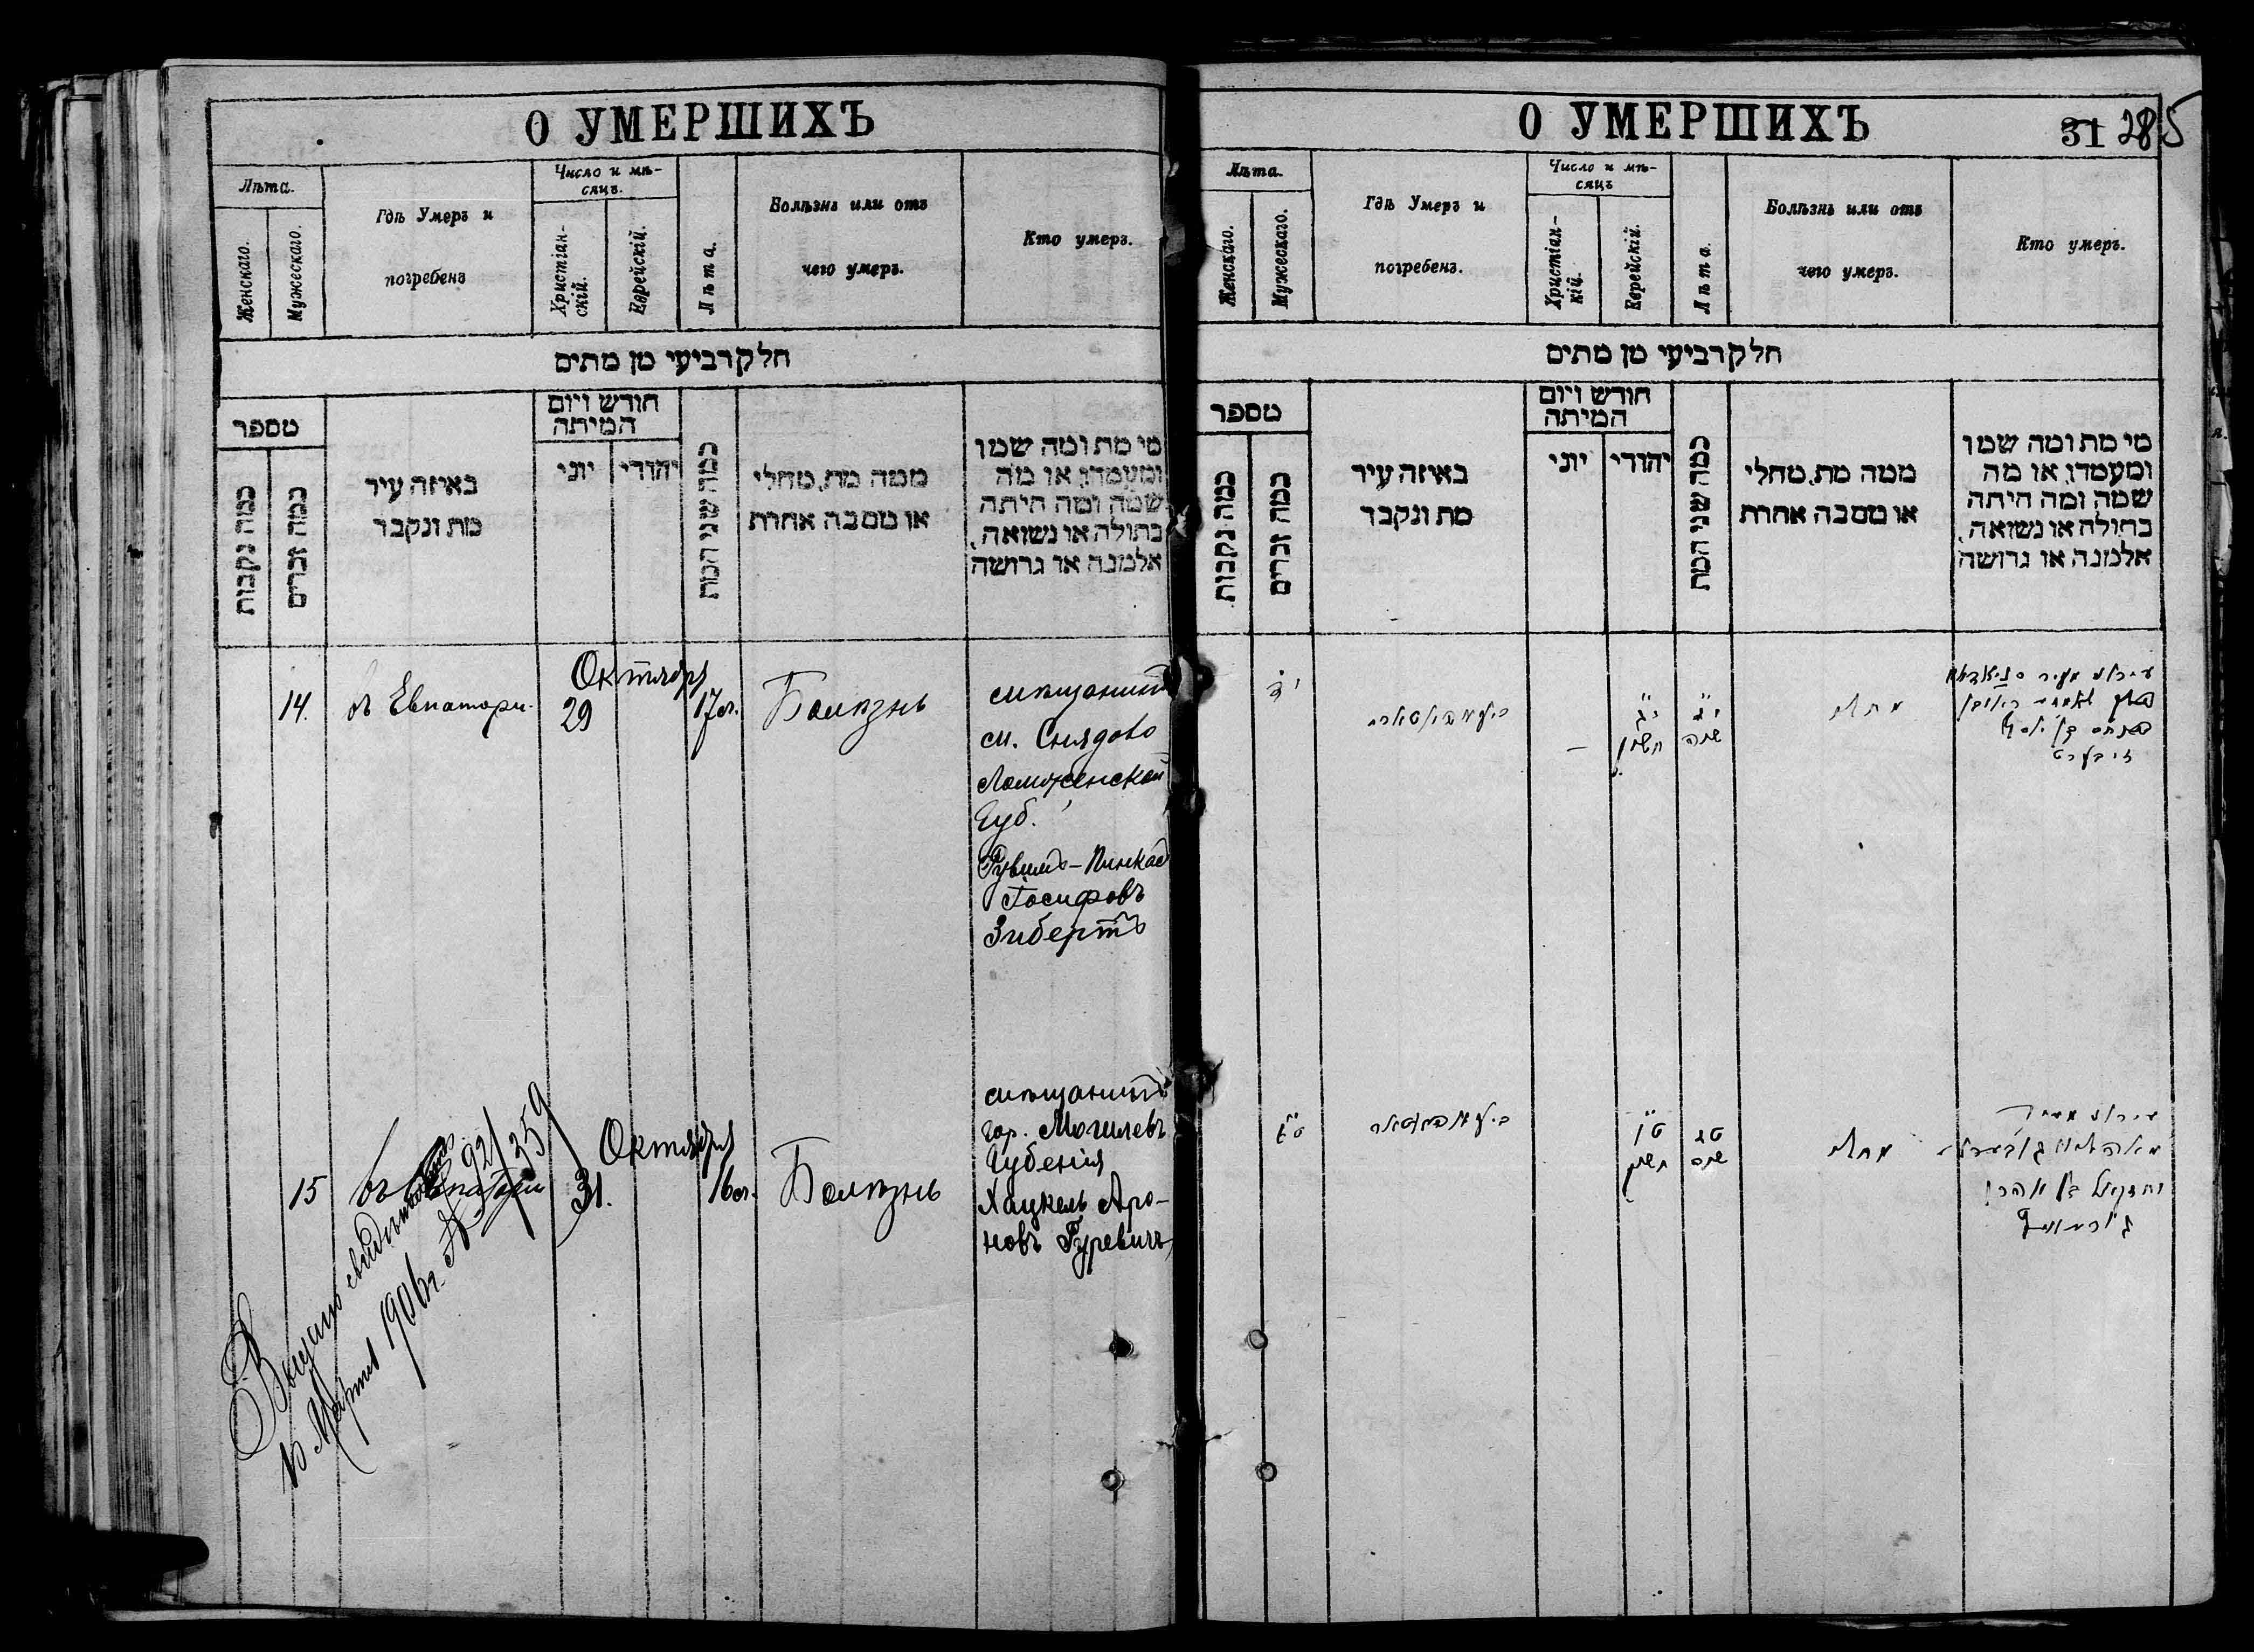 О УМЕРШИХЪ
Лѣта.
Женскаго.
Мужескаго.
Гдѣ Умеръ и
погребенъ
Число и мѣ-
сяцъ.
Христіан-
скій.
Еврейскій.
Лѣта.
Болѣзнь или отъ
чего умеръ.
Кто умеръ.
חלק רביעי מן מתים
מספר
כמה נקבות
כמה זכרים
באיזה עיר
מת ונקבר
חודש ויום
המיתה
יוני
יהודי
כמה שני המת
ממה מת, מחלי
או מסבה אחרת
מי מת ומה שמו
ומעמדו, או מה
שמה ומה היתה
בתולה או נשואה,
אלמנה או גרושה
14.
въ Евпатори.
Октября
29
17 л.
Болѣзнь
мѣщанинъ
м. Снядово
Ломженской
Губ.
Рувимъ-Пинхас
Іосифовъ
Зибертъ
15
въ Евпатории
Октября
31.
16 л.
Болѣзнь
мѣщанинъ
гор. Могилевъ
Губенія
Хацкель Аро-
новъ Гуревичъ
Выдано свидѣтельство
в Мартѣ 1906 г. № 92/359
О УМЕРШИХЪ
31 285
Лѣта.
Женскаго.
Мужескаго.
Гдѣ Умеръ и
погребенъ.
Число и мѣ-
сяцъ
Христіан-
кій.
Еврейскій.
Лѣта.
Болѣзнь или отъ
чего умеръ.
Кто умеръ.
חלק רביעי מן מתים
מספר
כמה נקבות
כמה זכרים
באיזה עיר
מת ונקבר
חודש ויום
המיתה
יוני
יהודי
כמה שני המת
ממה מת, מחלי
או מסבה אחרת
מי מת ומה שמו
ומעמדו, או מה
שמה ומה היתה
בתולה או נשואה,
אלמנה או גרושה
יד
חשון
שנה
מחלי
בן יוסף
זיבערט
חשון
מחלי
יחזקאל בן אהרן